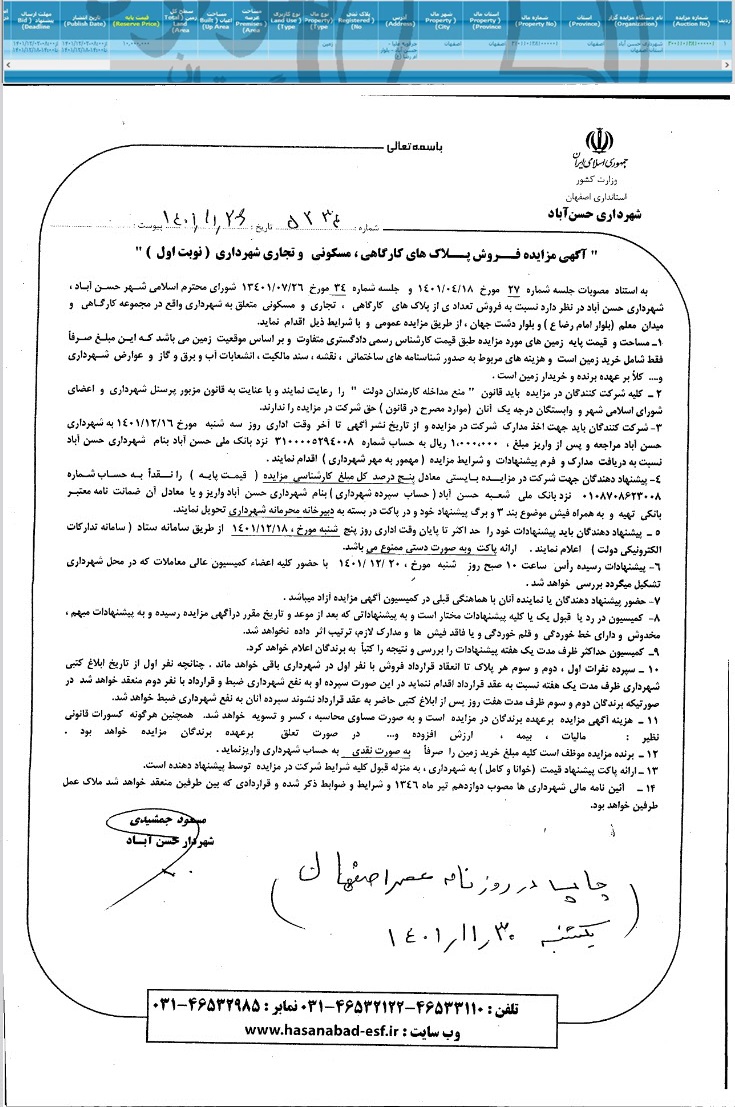 ردیف
شماره مزایده (Auction No)
نام دستگاه مزایده گزار (Organization)
استان (Province)
شماره مال (Property No)
استان مال (Property Province)
شهر مال (Property City)
آدرس (Address)
پلاک ثبتی (Registered No)
نوع مال (Property Type)
نوع کاربری (Land Use Type)
مساحت عرصه (Premises Area)
مساحت اعیان (Built Up Area)
سطح کل (Total Land Area)
قیمت پایه (Reserve Price)
تاریخ انتشار (Publish Date)
مهلت ارسال (Bid Deadline)
اصفهان
اصفهان
اصفهان
زمین
باسمه تعالی
جمهوری اسلامی ایران
وزارت کشور
استانداری اصفهان
شهرداری حسن آباد
شماره : ۵۲۳۴ تاریخ : ۱۴۰۱/۱۱/۲۶ پیوست :
" آگهی مزایده فروش پلاک های کارگاهی ، مسکونی و تجاری شهرداری ( نوبت اول ) "
به استناد مصوبات جلسه شماره ۲۷ مورخ ۱۴۰۱/۰۴/۱۸ و جلسه شماره ۳۴ مورخ ۱۳۴۰۱/۰۷/۲۶ شورای محترم اسلامی شهر حسن آباد ،
شهرداری حسن آباد در نظر دارد نسبت به فروش تعداد ی از پلاک های کارگاهی ، تجاری و مسکونی متعلق به شهرداری واقع در مجموعه کارگاهی و
میدان معلم (بلوار امام رضا ع ) و بلوار دشت جهان ، از طریق مزایده عمومی و با شرایط ذیل اقدام نماید.
۱- مساحت و قیمت پایه زمین های مورد مزایده طبق قیمت کارشناس رسمی دادگستری متفاوت و بر اساس موقعیت زمین می باشد که این مبلغ صرفاً
فقط شامل خرید زمین است و هزینه های مربوط به صدور شناسنامه های ساختمانی ، نقشه ، سند مالکیت ، انشعابات آب و برق و گاز و عوارض شهرداری
و.... کلاً بر عهده برنده و خریدار زمین است .
۲ – کلیه شرکت کنندگان در مزایده باید قانون " منع مداخله کارمندان دولت " را رعایت نمایند و با عنایت به قانون مزبور پرسنل شهرداری و اعضای
شورای اسلامی شهر و وابستگان درجه یک آنان (موارد مصرح در قانون ) حق شرکت در مزایده را ندارند.
۳- شرکت کنندگان باید جهت اخذ مدارک شرکت در مزایده و از تاریخ نشر آگهی تا آخر وقت اداری روز سه شنبه مورخ ۱۴۰۱/۱۲/۱۶ به شهرداری
حسن آباد مراجعه و پس از واریز مبلغ ، ۱,۰۰۰,۰۰۰ ریال به حساب شماره ۳۱۰۰۰۰۵۲۹۴۰۰۸ نزد بانک ملی حسن آباد بنام شهرداری حسن آباد
نسبت به دریافت مدارک و فرم پیشنهادات و شرایط مزایده ( ممهور به مهر شهرداری ) اقدام نمایند .
۴- پیشنهاد دهندگان جهت شرکت در مزایده بایستی معادل پنج درصد کل مبلغ کارشناسی مزایده ( قیمت پایه ) را نقداً به حساب شماره
۰۱۰۸۷۰۸۶۲۳۰۰۸ نزد بانک ملی شعبه حسن آباد ( حساب سپرده شهرداری ) بنام شهرداری حسن آباد واریز و یا معادل آن ضمانت نامه معتبر
بانکی تهیه و به همراه فیش موضوع بند ۳ و برگ پیشنهاد خود و در پاکت در بسته به دبیرخانه محرمانه شهرداری تحویل نمایند.
۵ – پیشنهاد دهندگان باید پیشنهادات خود را حد اکثر تا پایان وقت اداری روز پنج شنبه مورخ ، ۱۴۰۱/۱۲/۱۸ از طریق سامانه ستاد ( سامانه تدارکات
الکترونیکی دولت ) اعلام نمایند . ارائه پاکت وبه صورت دستی ممنوع می باشد.
۶- پیشنهادات رسیده رأس ساعت ۱۰ صبح روز شنبه مورخ ، ۲۰ /۱۲ /۱۴۰۱ با حضور کلیه اعضاء کمیسیون عالی معاملات که در محل شهرداری
تشکیل میگردد بررسی خواهد شد .
۷- حضور پیشنهاد دهندگان یا نماینده آنان با هماهنگی قبلی در کمیسیون آگهی مزایده آزاد میباشد .
۸- کمیسیون در رد یا قبول یک یا کلیه پیشنهادات مختار است و به پیشنهاداتی که بعد از موعد و تاریخ مقرر درآگهی مزایده رسیده و به پیشنهادات مبهم ،
مخدوش و دارای خط خوردگی و قلم خوردگی و یا فاقد فیش ها و مدارک لازم، ترتیب اثر داده نخواهد شد.
۹_ کمیسیون حداکثر ظرف مدت یک هفته پیشنهادات را بررسی و نتیجه را کتباً به برندگان اعلام خواهد کرد.
۱۰ – سپرده نفرات اول ، دوم و سوم هر پلاک تا انعقاد قرارداد فروش با نفر اول در شهرداری باقی خواهد ماند . چنانچه نفر اول از تاریخ ابلاغ کتبی
شهرداری ظرف مدت یک هفته نسبت به عقد قرارداد اقدام ننماید در این صورت سپرده او به نفع شهرداری ضبط و قرارداد با نفر دوم منعقد خواهد شد در
صورتیکه برندگان دوم و سوم ظرف مدت هفت روز پس از ابلاغ کتبی حاضر به عقد قرارداد نشوند سپرده آنان به نفع شهرداری ضبط خواهد شد.
۱۱ – هزینه آگهی مزایده برعهده برندگان در مزایده است و به صورت مساوی محاسبه ، کسر و تسویه خواهد شد. همچنین هرگونه کسورات قانونی
نظیر : مالیات ، بیمه ، ارزش افزوده و... در صورت تعلق برعهده برندگان مزایده خواهد بود .
۱۲ – برنده مزایده موظف است کلیه مبلغ خرید زمین را صرفاً به صورت نقدی به حساب شهرداری واریزنماید .
۱۳ – ارائه پاکت پیشنهاد قیمت (خوانا و کامل ) به شهرداری ، به منزله قبول کلیه شرایط شرکت در مزایده توسط پیشنهاد دهنده است.
۱۴ – آئین نامه مالی شهرداری ها مصوب دوازدهم تیر ماه ۱۳۴۶ و شرایط و ضوابط ذکر شده و قراردادی که بین طرفین منعقد خواهد شد ملاک عمل
طرفین خواهد بود.
مسعود جمشیدی
شهردار حسن آباد
چاپ در روزنامه عصر اصفهان
یکشنبه ۱۴۰۱/۱۱/۳۰
تلفن : ۴۶۵۳۳۱۱۰-۴۶۵۳۲۱۲۲-۰۳۱ نمابر : ۴۶۵۳۲۹۸۵-۰۳۱
وب سایت : www.hasanabad-esf.ir